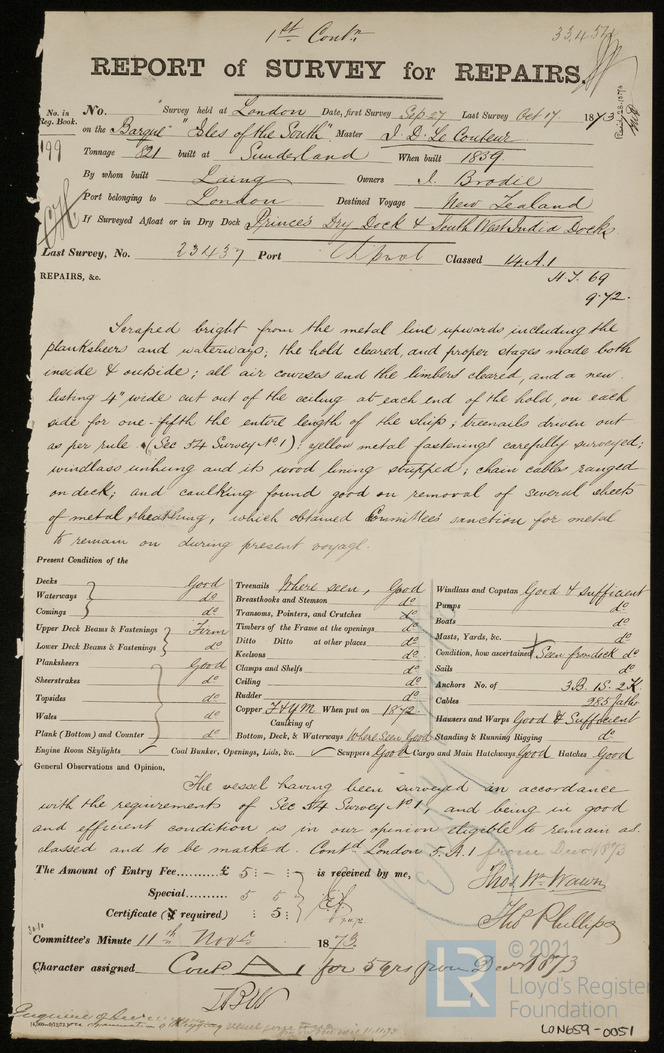 1st Contn
33457
REPORT of SURVEY for REPAIRS.
No. in Reg. Book. No. Survey held at London Date, first Survey Sep 27 Last Survey Oct 17 1873
on the Barque "Isles of the South" Master J. D. Le Couteur
199 Tonnage 821 built at Sunderland When built 1839
By whom built Laing Owners J. Brodie
Port belonging to London Destined Voyage New Zealand
If Surveyed Afloat or in Dry Dock Princes Dry Dock & South West India Docks
Last Survey, No. 23437 Port Classed 14.A.1
REPAIRS, &c.
69
9.72.
Scraped bright from the metal line upwards including the
planksheers and waterways; the hold cleared, and proper stages made both
inside & outside; all air courses and the limbers cleared, and a new
listing 4" wide cut out of the ceiling at each end of the hold, on each
side for one-fifth the entire length of the ship; treenails driven out
as per rule (Sec 54 Survey No. 1): yellow metal fastenings carefully surveyed;
windlass unhung and its wood lining stripped; chain cables ranged
on deck; and caulking found good on removal of several sheets
of metal sheathing, which obtained Committee's sanction for metal
to remain on during present voyage.
Present Condition of the
Decks Good
Waterways do
Comings do
Upper Deck Beams & Fastenings Firm
Lower Deck Beams & Fastenings do
Planksheers Good
Sheerstrakes do
Topsides do
Wales do
Plank (Bottom) and Counter do
Treenails Where seen, Good
Breasthooks and Stemson do
Transoms, Pointers, and Crutches do
Timbers of the Frame at the openings do
Ditto Ditto at other places do
Keelsons do
Clamps and Shelfs do
Ceiling do
Rudder do
Copper F & YM When put on 1872.
Caulking of
Bottom, Deck, & Waterways Where seen Good
Windlass and Capstan Good & sufficient
Pumps do
Boats do
Masts, Yards, &c. do
Condition, how ascertained Seen from deck do
Sails do
Anchors No. of 3.B. 1S. 2K.
Cables
Hawsers and Warps Good & Sufficient
Standing & Running Rigging do
Engine Room Skylights ✓ Coal Bunker, Openings, Lids, &c. ✓ Scuppers Good Cargo and Main Hatchways Good Hatches Good
General Observations and Opinion,
The vessel having been surveyed in accordance
with the requirements of Sec 54 Survey No. 1, and being in good
and efficient condition is in our opinion eligible to remain as
classed and to be marked. Contd London 5. A. 1 from Decr 1873
The Amount of Entry Fee £ 5 : - : is received by me,
Special 5 5
Certificate (if required) : 5 :
Thos. Wm. Wawn
Thos Phillips
Committee's Minute 11th Novr 1873
Character assigned Contd A 1 for 5 yrs from Decr 1873
© 2021
LR
Lloyd's Register
Foundation
LON659-0051